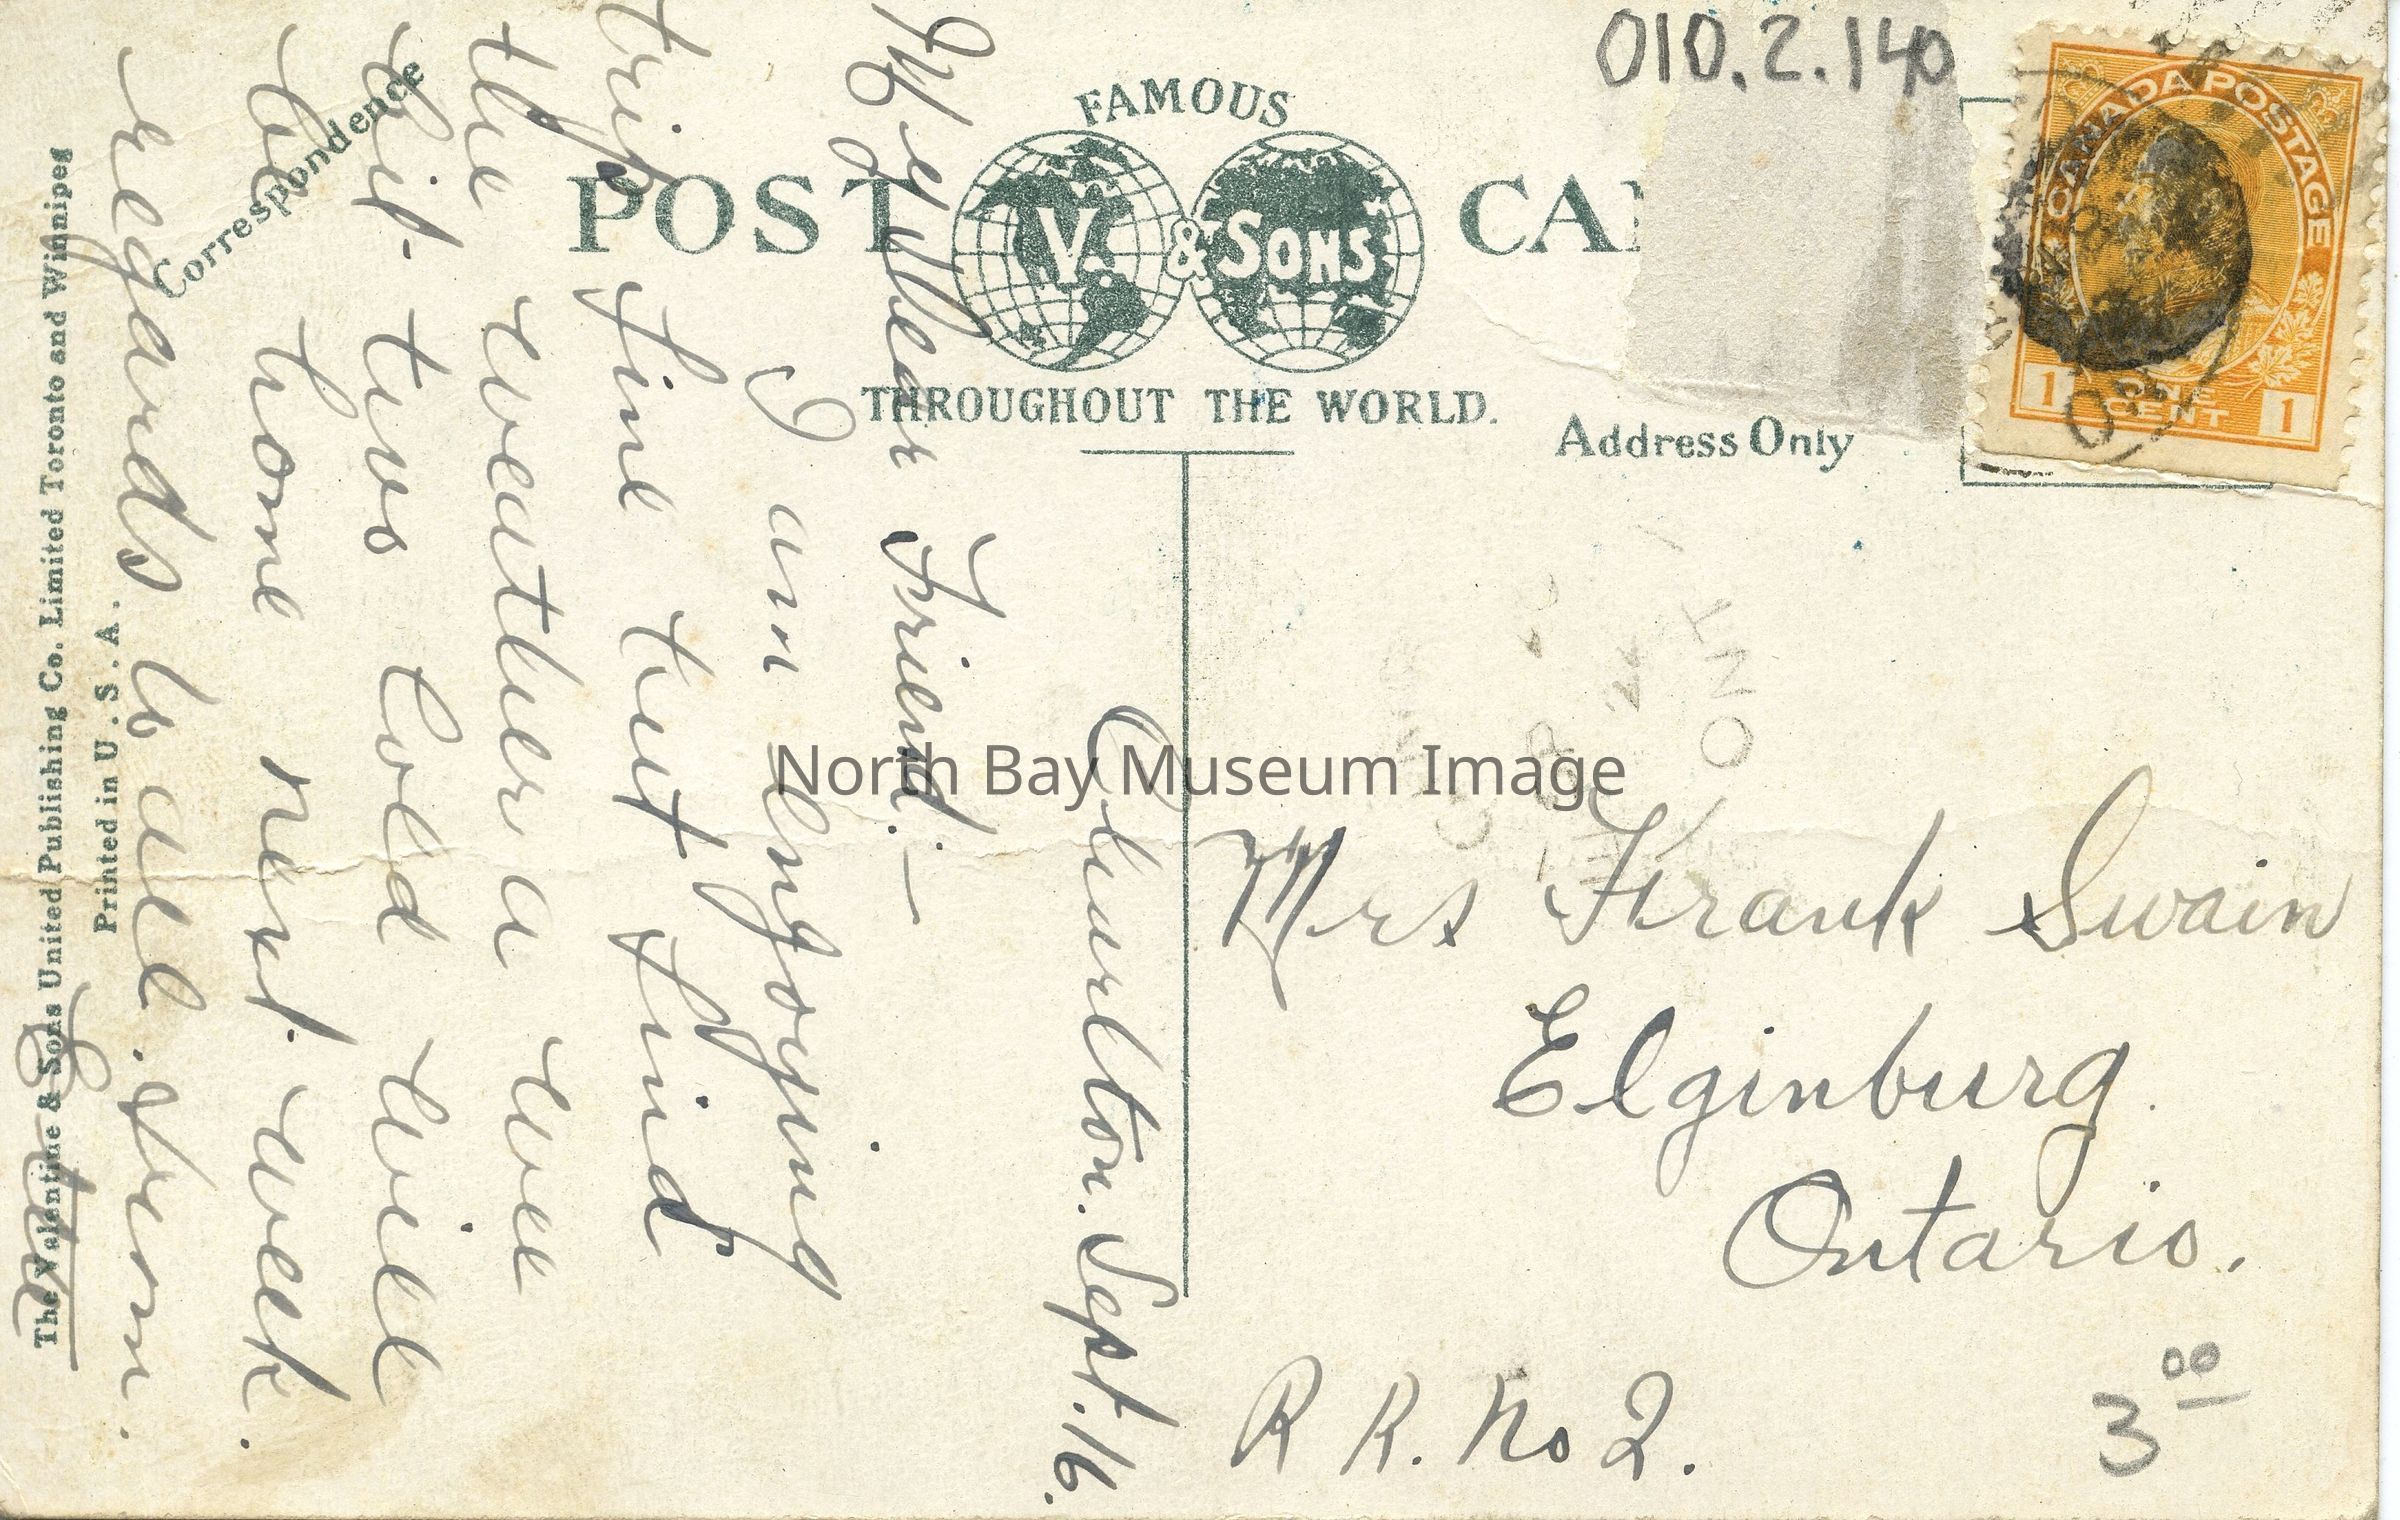 010.2.140
FAMOUS
POST CAR
V. & SONS
THROUGHOUT THE WORLD.
Correspondence
Address Only
CANADA POSTAGE
1 ONE CENT 1
Charlton. Sept. 16.
My Dear Friend.—
I am enjoying
trip fine but find
the weather a wee
bit two cold will
be home next week.
regards to all. from.
The Valentine & Sons United Publishing Co. Limited Toronto and Winnipeg
Printed in U.S.A.
ONT
Mrs Frank Swain
Elginburg.
Ontario.
R R. No 2.
3 00
North Bay Museum Image